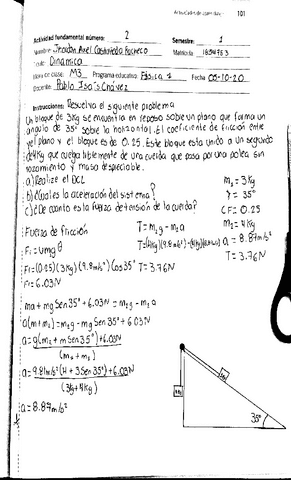 101
Actividad fundamental número: 2 Semestre: 1
Nombre: Axel Castañeda Pacheco Matrícula
Dinámica
clase: M3 Programa educativo: Física 1 Fecha 05-10-20
Docente: Pablo Chávez
Instrucciones: Resuelva el siguiente problema
Un bloque de 3Kg se encuentra en reposo sobre un plano que forma un
ángulo de 35° sobre la horizontal. El coeficiente de fricción entre
el plano y el bloque es de 0.25. Este bloque esta unido a un segundo
de 4Kg que cuelga libremente de una cuerda que pasa por una polea sin
rozamiento y masa despreciable.
a) Realize el DCL
b) ¿Cual es la aceleración del sistema?
c) ¿De cuanto es la fuerza de tensión de la cuerda?
= 3Kg
= 35°
CF = 0.25
= 4Kg
a = 8.87m/s²
T = 3.76N
Fuerzas de fricción
T = m₂g - m₂a
T = 3.76N
Fr = (0.25)(3Kg)(9.8m/s²)(Cos 35°)
Fr = 6.03N
ma + mg Sen 35° + 6.03N = m₂g - m₂a
a(m + m₂) = m₂g - mg Sen 35° + 6.03N
a = g(m₂ + m Sen 35°) + 6.03N
(m₁ + m₂)
a = 9.81m/s² (4 + 3 Sen 35°) + 6.03N
(3Kg + 4Kg)
a = 8.87m/s²
35°